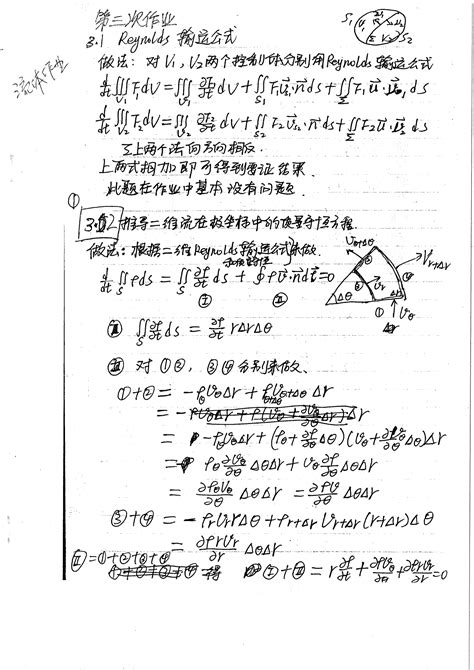 第三次作业
3.1 Reynolds 输运公式
做法: 对 V₁, V₂ 两个控制体分别用Reynolds输运公式
d/dt ∭_{V₁} F₁ dV = ∭_{V₁} ∂F₁/∂t dV + ∯_{S₁} F₁
d/dt ∭_{V₂} F₂ dV = ∭_{V₂} ∂F₂/∂t dV + ∯_{S₂} F₂
Σ上两个法向方向相反.
上两式相加即可得到要证结果.
此题在作业中基本没有问题.
①
3. 2 推导二维流在极坐标中的质量守恒方程.
做法: 根据二维Reynolds输运公式来做.
d/dt ∬_S ρds = ∬_S ∂ρ/∂t ds + ∮ρ =0
V_{θ+Δθ} V_{r+Δr} V_r V_θ Δθ Δr
∬_S ∂ρ/∂t ds = ∂ρ/∂t rΔrΔθ
对 ①②, ③④ 分别来做.
①+② = −ρ_θ V_θ Δr + ρ_{θ+Δθ} V_{θ+Δθ} Δr
= −ρ_θ V_θ Δr + (ρ_θ + ∂ρ/∂θ Δθ)(V_θ + ∂V_θ/∂θ Δθ)Δr
= ρ_θ ∂V_θ/∂θ ΔθΔr + V_θ ∂ρ/∂θ ΔθΔr
= ∂ρ_θV_θ/∂θ ΔθΔr = ∂ρV_θ/∂θ ΔθΔr
③+④ = −ρ_r V_r rΔθ + ρ_{r+Δr} V_{r+Δr} (r+Δr)Δθ
= ∂ρrV_r/∂r ΔθΔr
=①+②+③+④
得 = r ∂ρ/∂t + ∂ρV_θ/∂θ + ∂ρrV_r/∂r =0